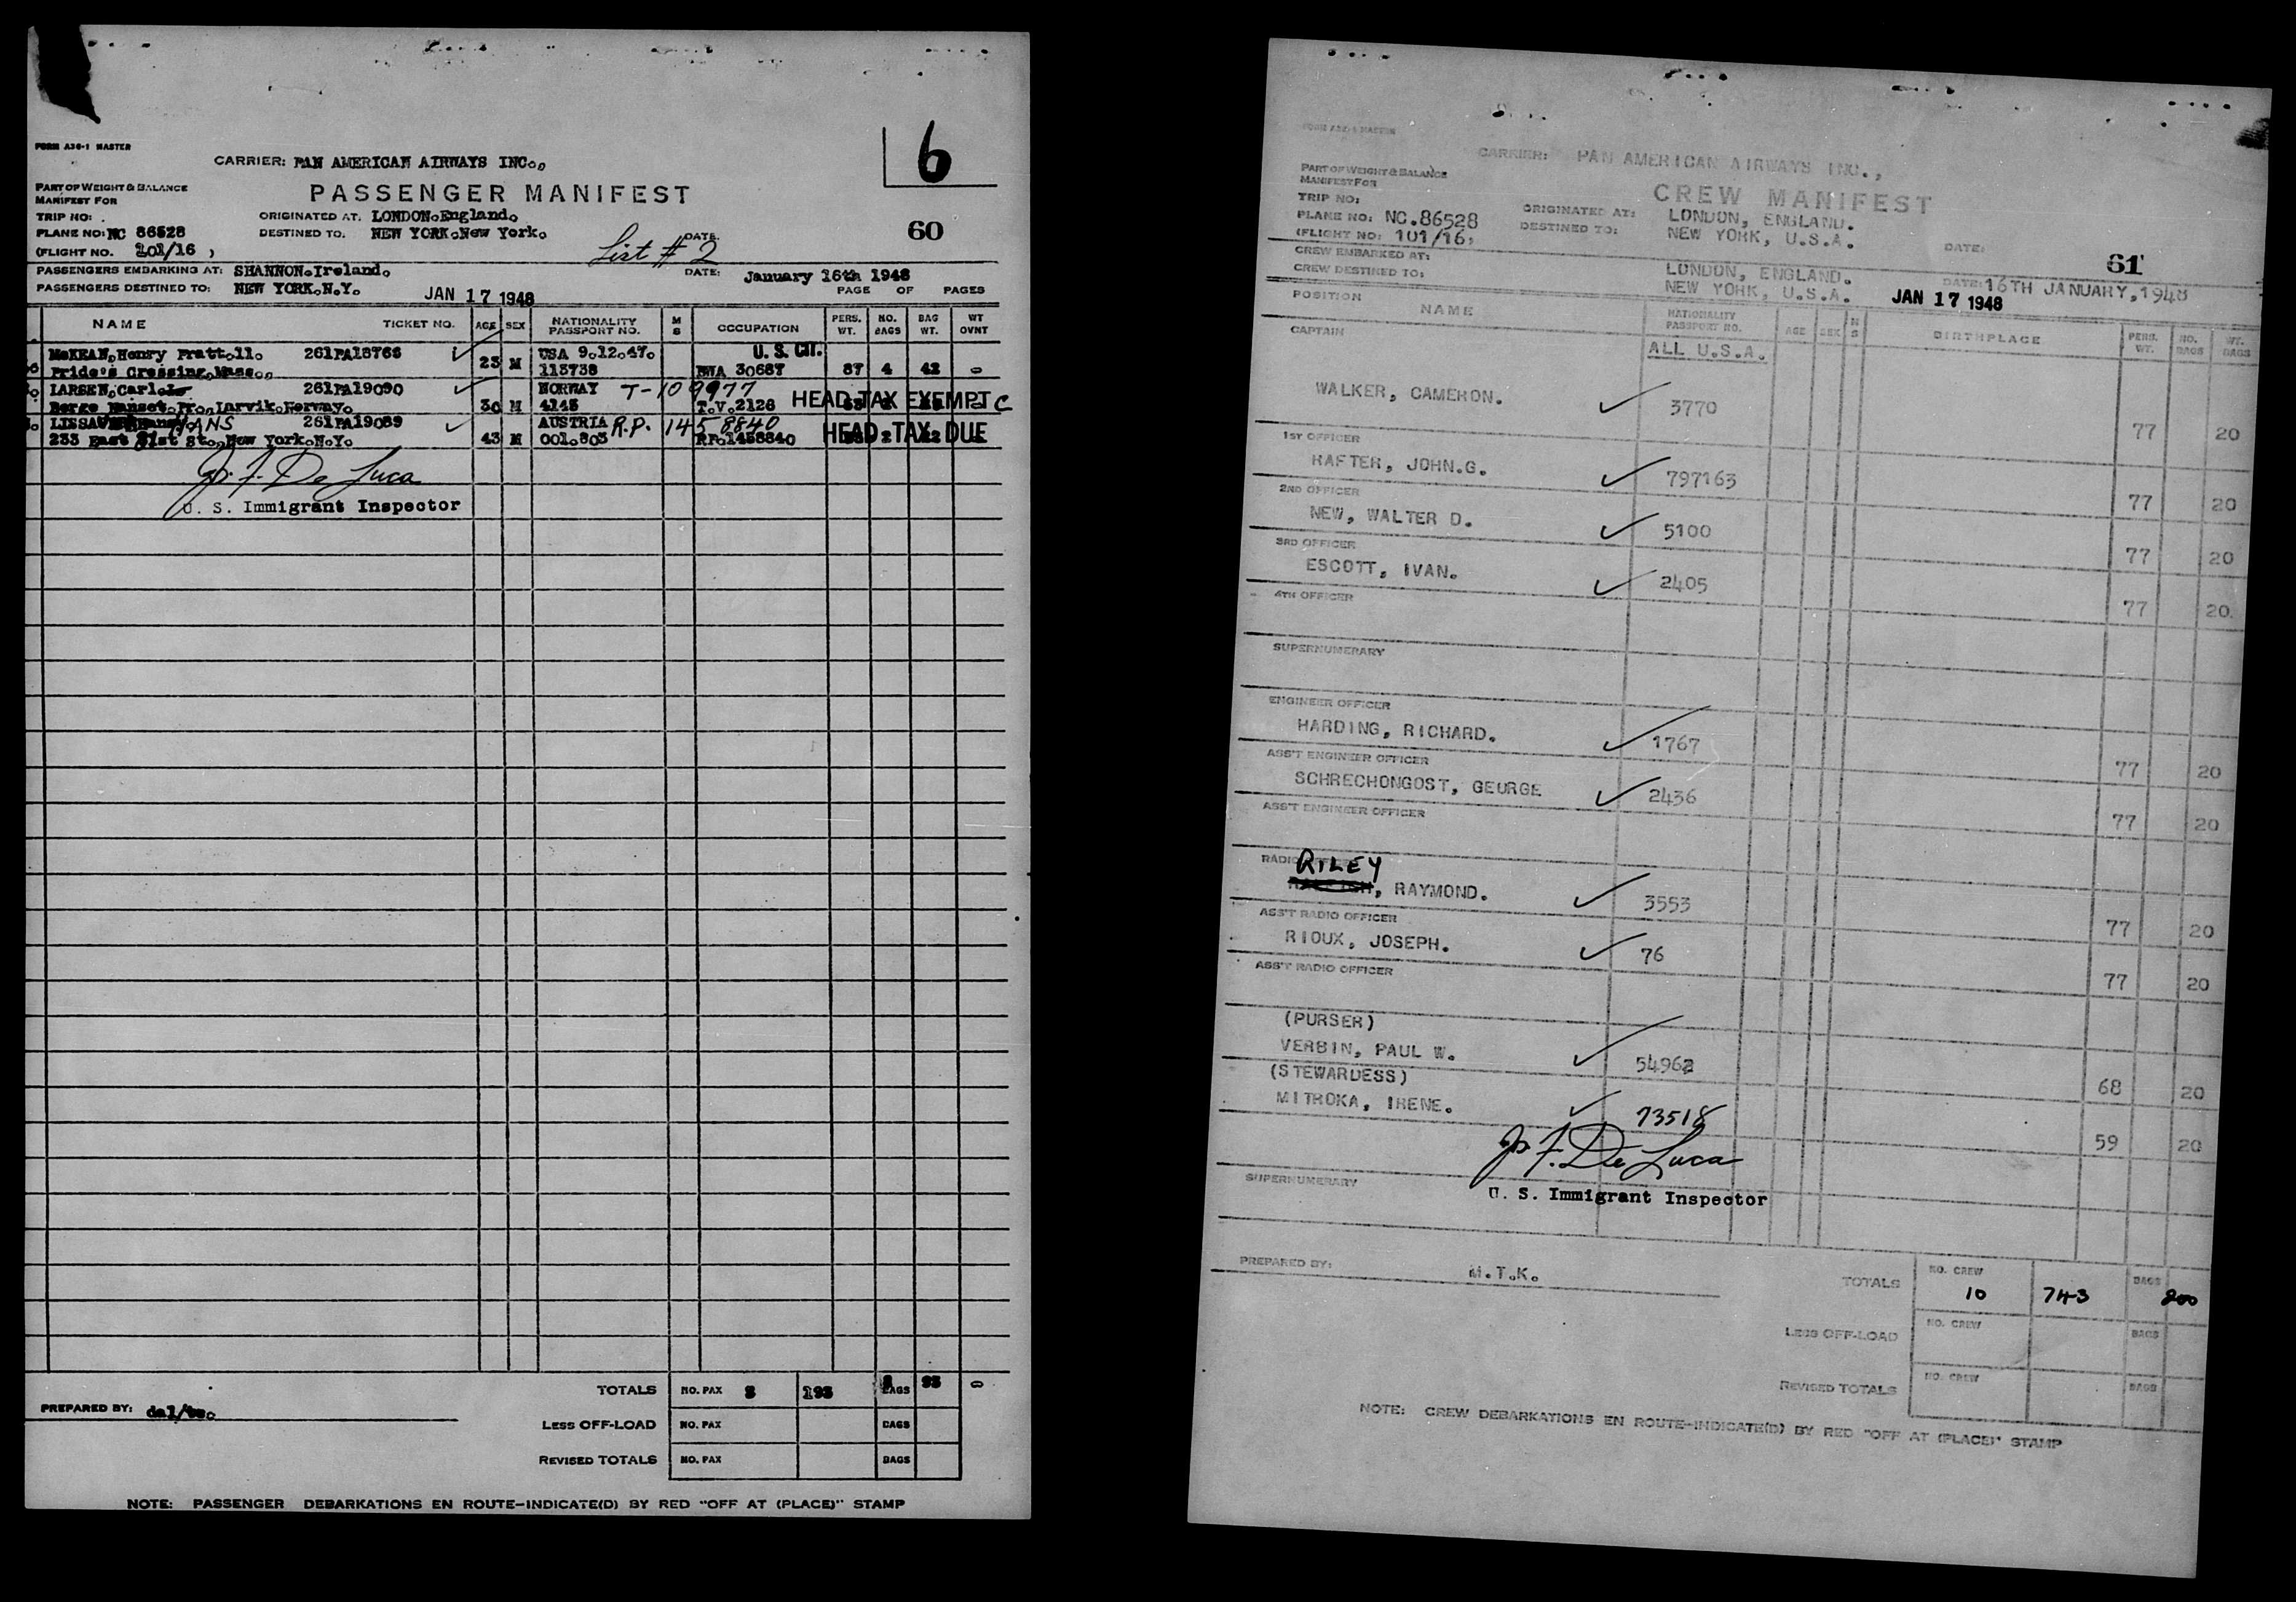 FORM A36-1 MASTER
CARRIER: PAN AMERICAN AIRWAYS INC.,
6
PART OF WEIGHT & BALANCE
MANIFEST FOR
PASSENGER MANIFEST
TRIP NO:
ORIGINATED AT. LONDON.England.
60
PLANE NO: NC 86528
DESTINED TO. NEW YORK.New York.
List # 2
DATE.
(FLIGHT NO. 101/16 )
PASSENGERS EMBARKING AT: SHANNON.Ireland.
DATE: January 16th 1948
PASSENGERS DESTINED TO: NEW YORK.N.Y.
JAN 17 1948
PAGE OF PAGES
NAME TICKET NO. AGE SEX NATIONALITY PASSPORT NO. M S OCCUPATION PERS. WT. NO. BAGS BAG WT. WT OVNT
McKEAN,Henry Pratt.11. 261PA18766 USA 9.12.47. U. S. CIT.
Pride's Crossing,Mass., 23 M 113738 BWA 30687 87 4 42
LARSEN,Carl. 261PA19090 NORWAY T-109977
Berge Nanset.Pr.,Larvik.Norway. 30 M 4145 T.V.2126 HEAD TAX EXEMPT C
HANS 261PA19089 AUSTRIA R.P. 1458840
233 East 81st St.,New York.N.Y. 43 M 001.803 RP.1458840 HEAD TAX DUE
Jo. F. De Luca
U. S. Immigrant Inspector
TOTALS NO. PAX 193 BAGS 93
PREPARED BY:
LESS OFF-LOAD NO. PAX BAGS
REVISED TOTALS NO. PAX BAGS
NOTE: PASSENGER DEBARKATIONS EN ROUTE-INDICATE(D) BY RED "OFF AT (PLACE)" STAMP
FORM A32-1 MASTER
CARRIER: PAN AMERICAN AIRWAYS INC.,
PART OF WEIGHT & BALANCE
MANIFEST FOR
CREW MANIFEST
TRIP NO:
ORIGINATED AT: LONDON, ENGLAND.
PLANE NO: NC.86528
DESTINED TO: NEW YORK, U.S.A.
DATE:
(FLIGHT NO: 101/16)
61
CREW EMBARKED AT: LONDON, ENGLAND.
DATE: 16TH JANUARY, 1948
CREW DESTINED TO: NEW YORK, U.S.A.
JAN 17 1948
POSITION NAME NATIONALITY PASSPORT NO. AGE SEX M S BIRTHPLACE PERS. WT. NO. BAGS WT. BAGS
CAPTAIN
ALL U.S.A.
WALKER, CAMERON. 3770 77 20
1ST OFFICER
RAFTER, JOHN.G. 797163 77 20
2ND OFFICER
NEW, WALTER D. 5100 77 20
3RD OFFICER
ESCOTT, IVAN. 2405 77 20.
4TH OFFICER
SUPERNUMERARY
ENGINEER OFFICER
HARDING, RICHARD. 1767 77 20
ASS'T ENGINEER OFFICER
SCHRECHONGOST, GEORGE 2436 77 20
ASS'T ENGINEER OFFICER
RADIO
RILEY
, RAYMOND. 3553 77 20
ASS'T RADIO OFFICER
RIOUX, JOSEPH. 76 77 20
ASS'T RADIO OFFICER
(PURSER)
VERBIN, PAUL W. 54962 68 20
(STEWARDESS)
MITROKA, IRENE. 73518 59 20
Jo. F. De Luca
SUPERNUMERARY
U. S. Immigrant Inspector
PREPARED BY: M.T.K.
TOTALS NO. CREW 10 743 BAGS 200
LESS OFF-LOAD NO. CREW BAGS
REVISED TOTALS NO. CREW BAGS
NOTE: CREW DEBARKATIONS EN ROUTE-INDICATE(D) BY RED "OFF AT (PLACE)" STAMP